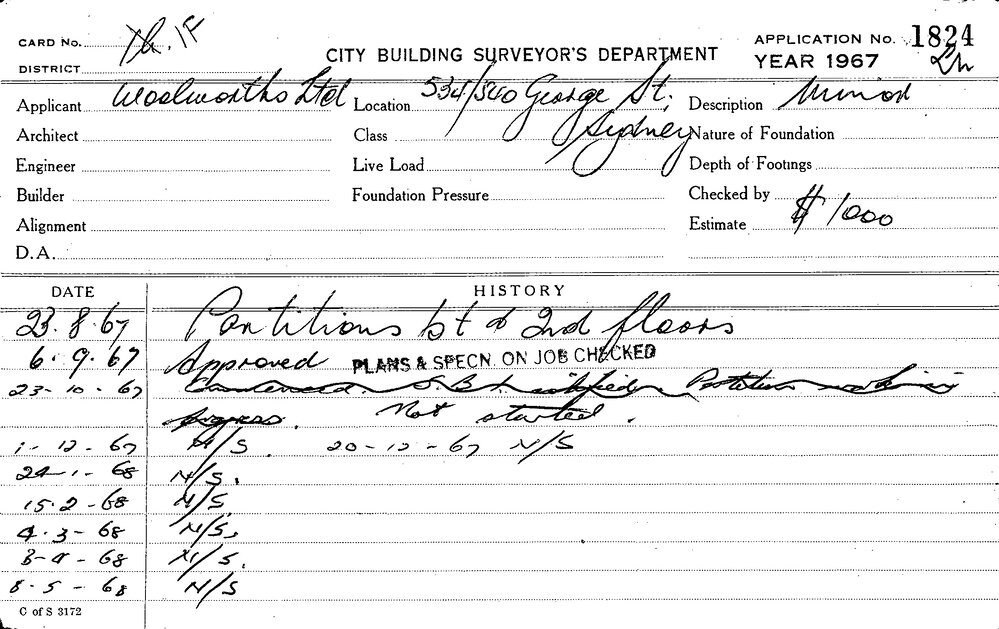 CARD No. Th. 1F
CITY BUILDING SURVEYOR'S DEPARTMENT
APPLICATION No. 1824
DISTRICT
YEAR 1967
Applicant Woolworths Ltd Location 534/540 George St; Description Minor
Architect Class Sydney Nature of Foundation
Engineer Live Load Depth of Footings
Builder Foundation Pressure Checked by
Alignment Estimate $1000
D.A.
DATE HISTORY
23.8.67 Partitions 1st & 2nd floors
6.9.67 Approved PLANS & SPECN. ON JOB CHECKED
23-10-67 Commenced
Progress. Not started.
1-12-67 N/S. 20-12-67 N/S
24-1-68 N/S.
15.2-68 N/S
4.3-68 N/S.
3-4-68 N/S.
8-5-68 N/S
C of S 3172